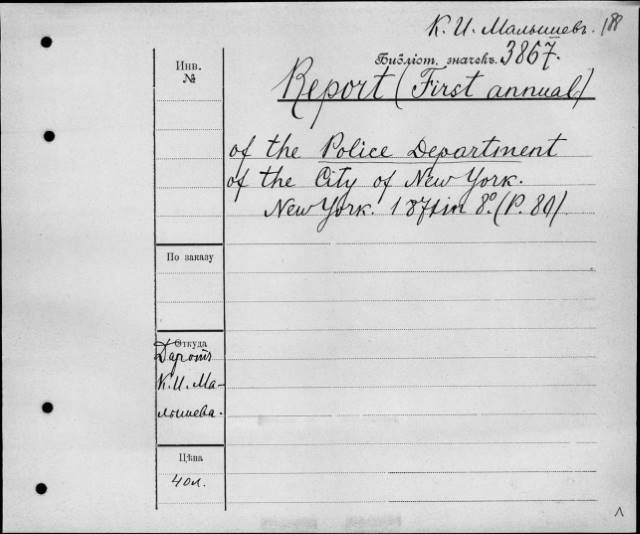 К. И. Малышевъ. 188
Библіот. значекъ. 3867.
Report (First annual)
of the Police Department
of the City of New York.
New York. 1871 in 8º. (P. 80)
Инв.
№
По заказу
Откуда
Даромъ
К. И. Ма-
лышева.
Цѣна